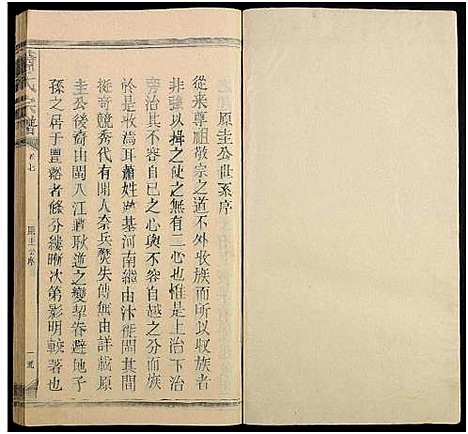 原圭公世系序
從来尊祖敬宗之道不外收族而所以收族者
非強以揖之使之無有二心也惟是上治下治
旁治其不容自已之心與不容自已之分而族
於是收焉耳蕭姓跡基河南繼由汴徙閩其間
挺奇競秀代有聞人奈兵燹失傳無由詳載原
圭公後裔由閩入江蔣耿道之變挈眷避地子
孫之居于豐谿者條分縷晰次第影明較著也
氏宗譜
卷七
原圭公序
一